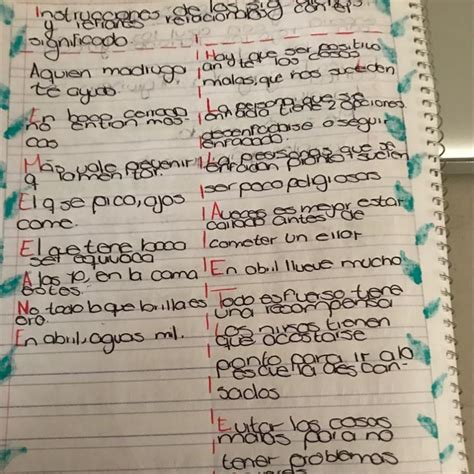 Instrucciones de los sig
y refranes relacionalos
significado
Aquien madruga
te ayuda
En boca cerrada
no entran mos-
cas
Más vale prevenir
q lamentar.
El q se pico, ajos
come.
El que tene boca
se equivoca
A las 10, en la cama
estes.
No todo lo que brilla es
oro
En abril, aguas mil.
Hay que ser positivo
an te los cosas
malas, que nos suceden
La persona que se
enfado tiene 2 opciones
desenfadarse o seguir
enfadado
Las personas que se
enfadan pronto suelen
ser poco peligrosas
Aveces es mejor estar
callado antes de
cometer un error
En abril llueve mucho
Todo esfuerso tiene
una recompensa
Los niños tienen
que acostarse
pronto para ir a la
escuela descan-
sados
Evitar las cosas
malas para no
tener problemas